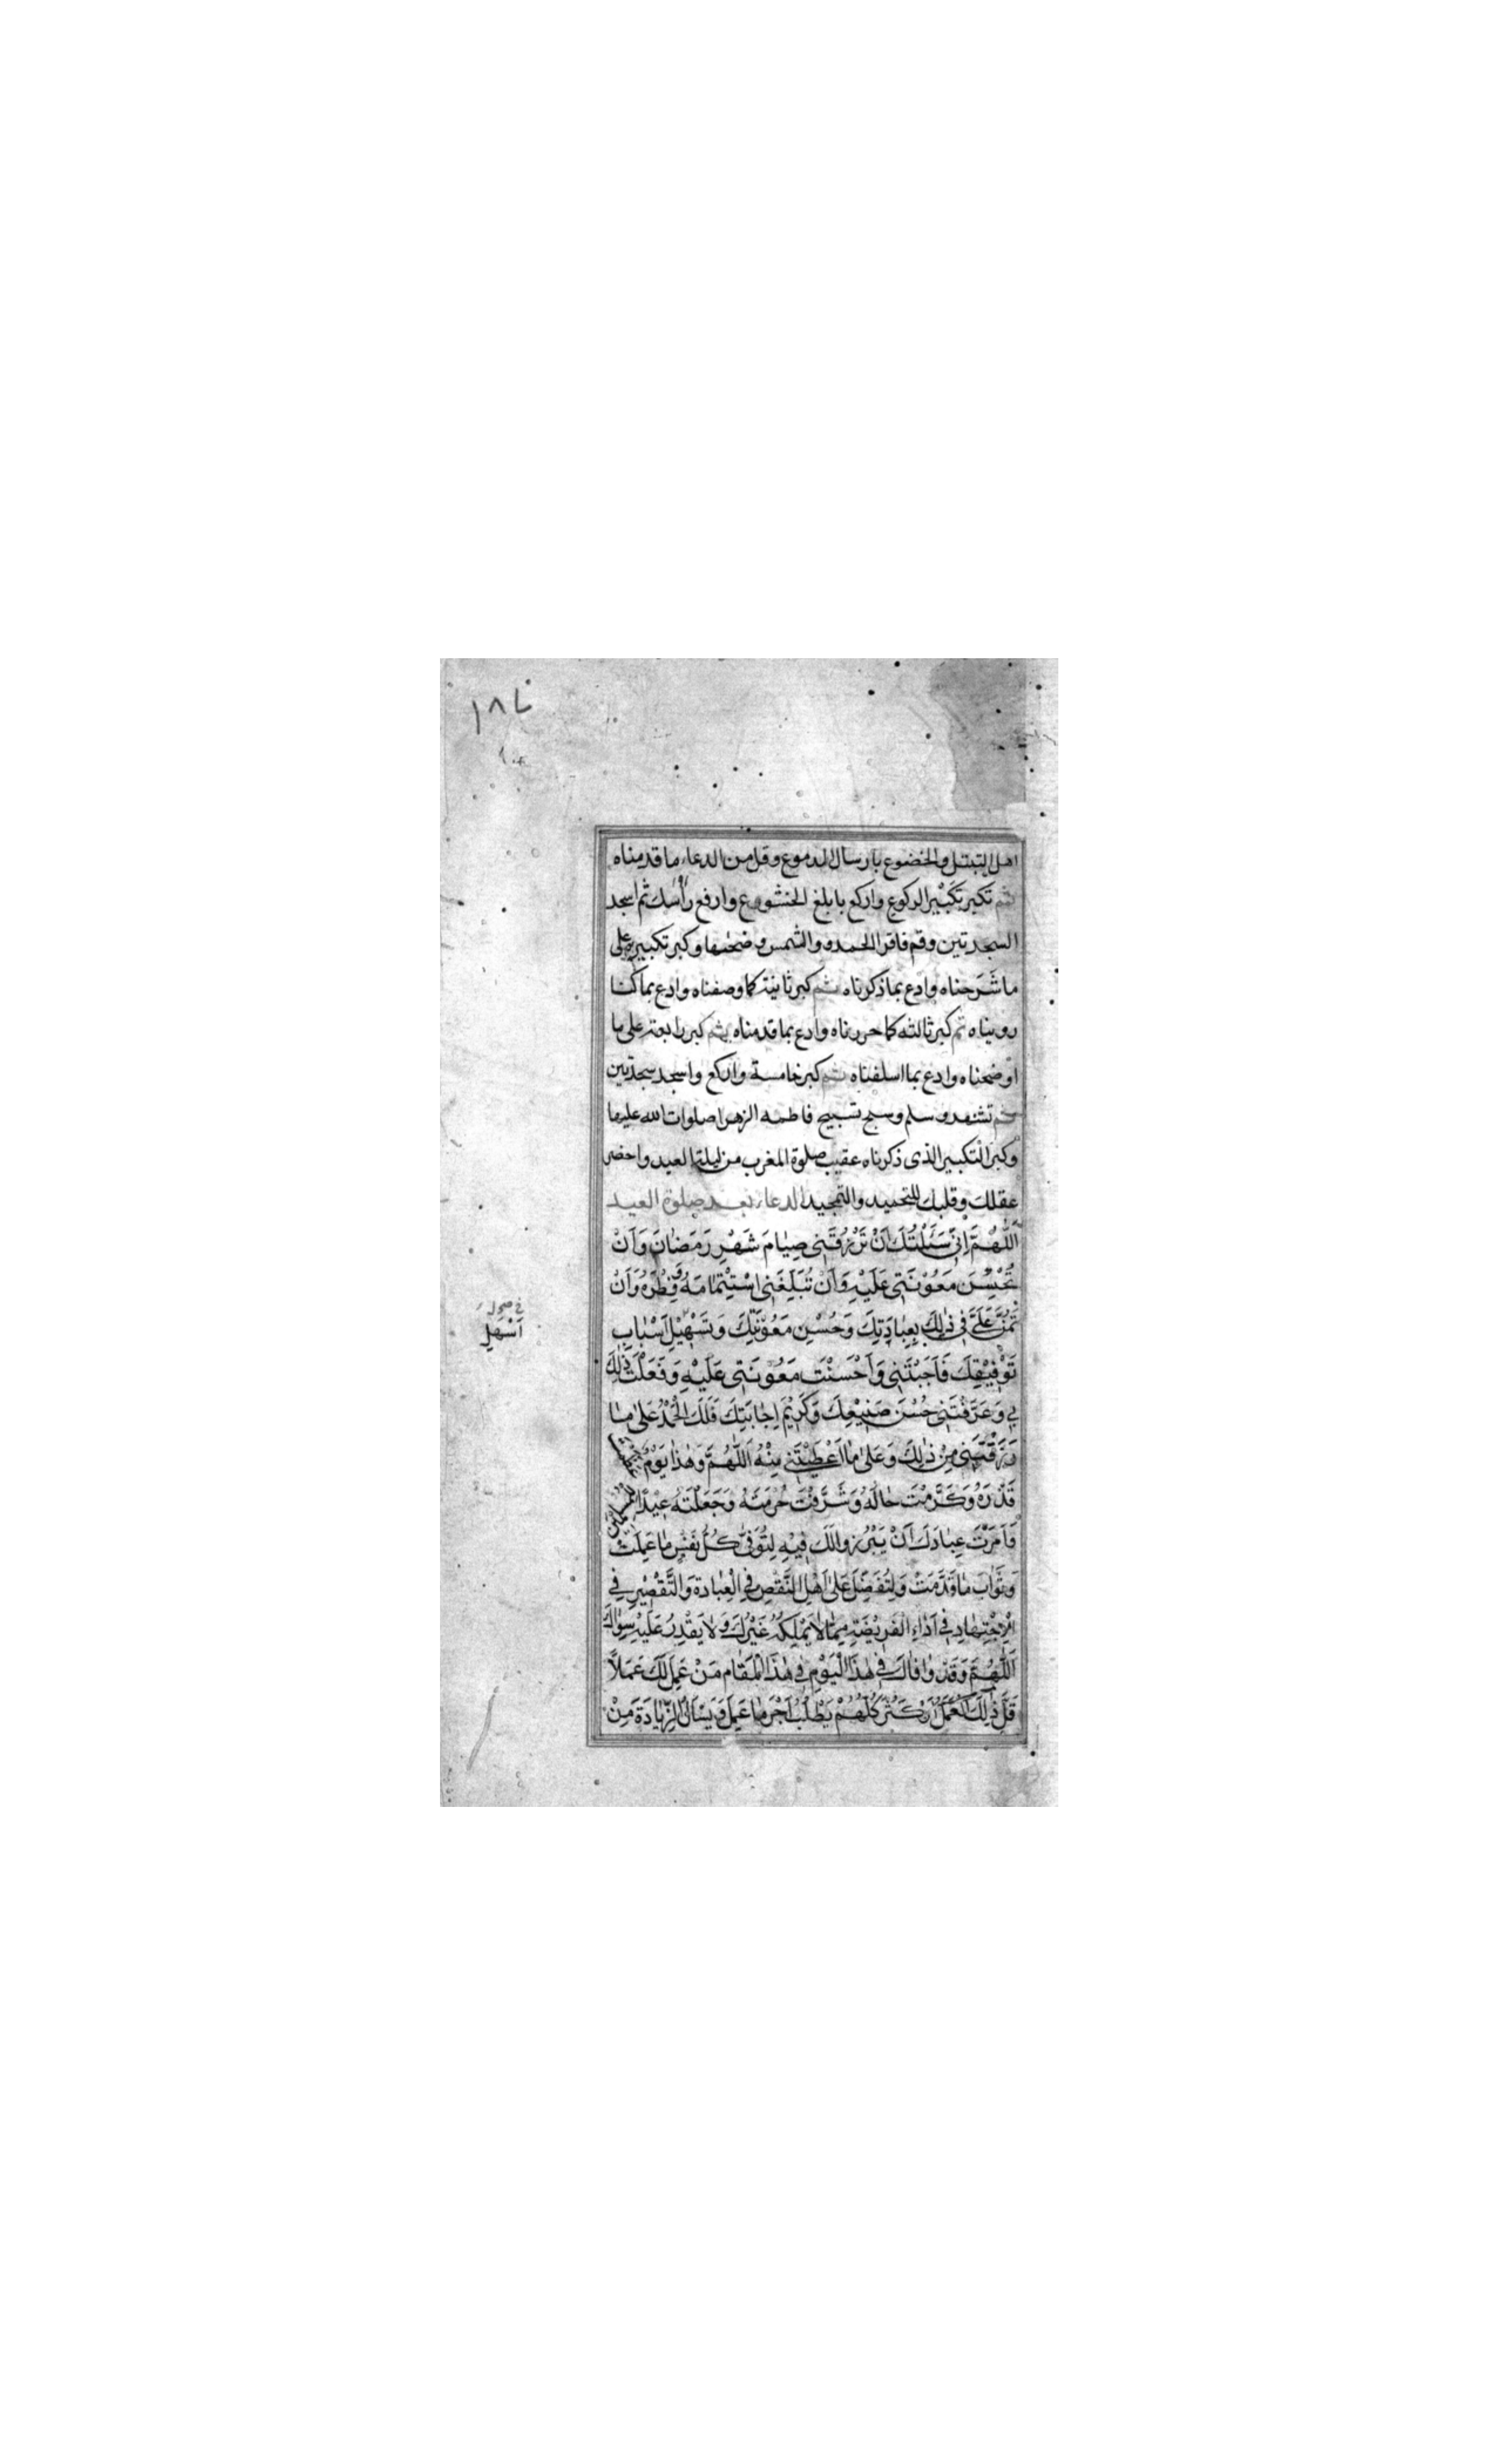 ١٨٢
اهل التبتل والخضوع بارسال الدموع وقل من الدعاء ما قدمناه
ثم تكبر تكبير الركوع واركع بابلغ الخشوع وارفع رأسك ثم اسجد
السجدتين وقم فاقرا الحمد و والشمس وضحيها وكبر تكبيرة على
ما شرحناه وادع بما ذكرناه ثم كبر ثانية كما وصفناه وادع بما كنا
رويناه ثم كبر ثالثه كما حررناه وادع بما قدمناه ثم كبر رابعة على ما
اوضحناه وادع بما اسلفناه ثم كبر خامسة واركع واسجد سجدتين
ثم تشهد وسلم وسبح تسبيح فاطمه الزهرا صلوات الله عليها
وكبر التكبير الذى ذكرناه عقيب صلوة المغرب من ليلة العيد واحضر
عقلك وقلبك للتحميد والتمجيد الدعاء بعد صلوة العيد
اَللّٰهُمَّ اِنّى سَئَلْتُكَ اَنْ تَرْزُقَنى صِيٰامَ شَهْرِ رَمَضٰانَ وَاَنْ
تُحْسِنَ مَعُوْنَتى عَلَيْهِ وَاَنْ تُبَلِّغَنى اسْتِتْمٰامَهُ وَفِطْرَهُ وَاَنْ
تَمُنَّ عَلَىَّ فى ذٰلِكَ بِعِبٰادَتِكَ وَحُسْنِ مَعُوْنَتِكَ وَتَسْهيْلِ اَسْبٰابِ
تَوْفيْقِكَ فَاَجَبْتَنى وَاَحْسَنْتَ مَعُوْنَتى عَلَيْهِ وَفَعَلْتَ ذٰلِكَ
بى وَعَرَّفْتَنى حُسْنَ صَنيْعِكَ وَكَريْمَ اِجٰابَتِكَ فَلَكَ الْحَمْدُ عَلىٰ مٰا
رَزَقْتَنى مِنْ ذٰلِكَ وَعَلىٰ مٰا اَعْطَيْتَنى مِنْهُ اَللّٰهُمَّ وَهٰذٰا يَوْمٌ
قَدْرَهُ وَكَرَّمْتَ حٰالَهُ وَشَرَّفْتَ حُرْمَتَهُ وَجَعَلْتَهُ عيْدًا
وَاَمَرْتَ عِبٰادَكَ اَنْ يَبْرُزوا لَكَ فيْهِ لِتُوَفّىٰ كُلُّ نَفْسٍ مٰا عَمِلَتْ
وَثَوٰابَ مٰا قَدَّمَتْ وَلِتَفَضَّلَ عَلىٰ اَهْلِ النَّقْصِ فِى الْعِبٰادَةِ وَالتَّقْصيْرِ فِى
الْاِجْتِهٰادِ فى اَدٰاءِ الْفَريْضَةِ مِمّٰا لٰا يَمْلِكُهُ غَيْرُكَ وَلٰا يَقْدِرُ عَلَيْهِ سِوٰاكَ
اَللّٰهُمَّ وَقَدْ وٰافٰاكَ فى هٰذَا الْيَوْمِ فى هٰذَا الْمَقٰامِ مَنْ عَمِلَ لَكَ عَمَلًا
قَلَّ ذٰلِكَ الْعَمَلُ اَوْ كَثُرَ كُلُّهُمْ يَطْلُبُ اَجْرَ مٰا عَمِلَ وَيَسْاَلُ الزِّيٰادَةَ مِنْ